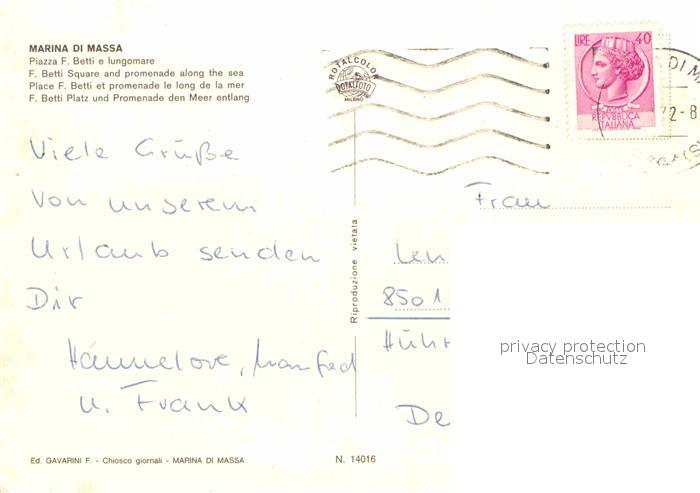 MARINA DI MASSA
Piazza F. Betti e lungomare
F. Betti Square and promenade along the sea
Place F. Betti et promenade le long de la mer
F. Betti Platz und Promenade den Meer entlang
ROTALCOLOR
ROTALFOTO
MILANO
LIRE 40
REPVBBLICA
ITALIANA
Viele Grüße
von unserem
Urlaub senden
Dir
Hannelore, Manfred
u. Frank
Riproduzione vietata
Frau
Len
8501
De
privacy protection
Datenschutz
Ed. GAVARINI F. - Chiosco giornali - MARINA DI MASSA
N. 14016